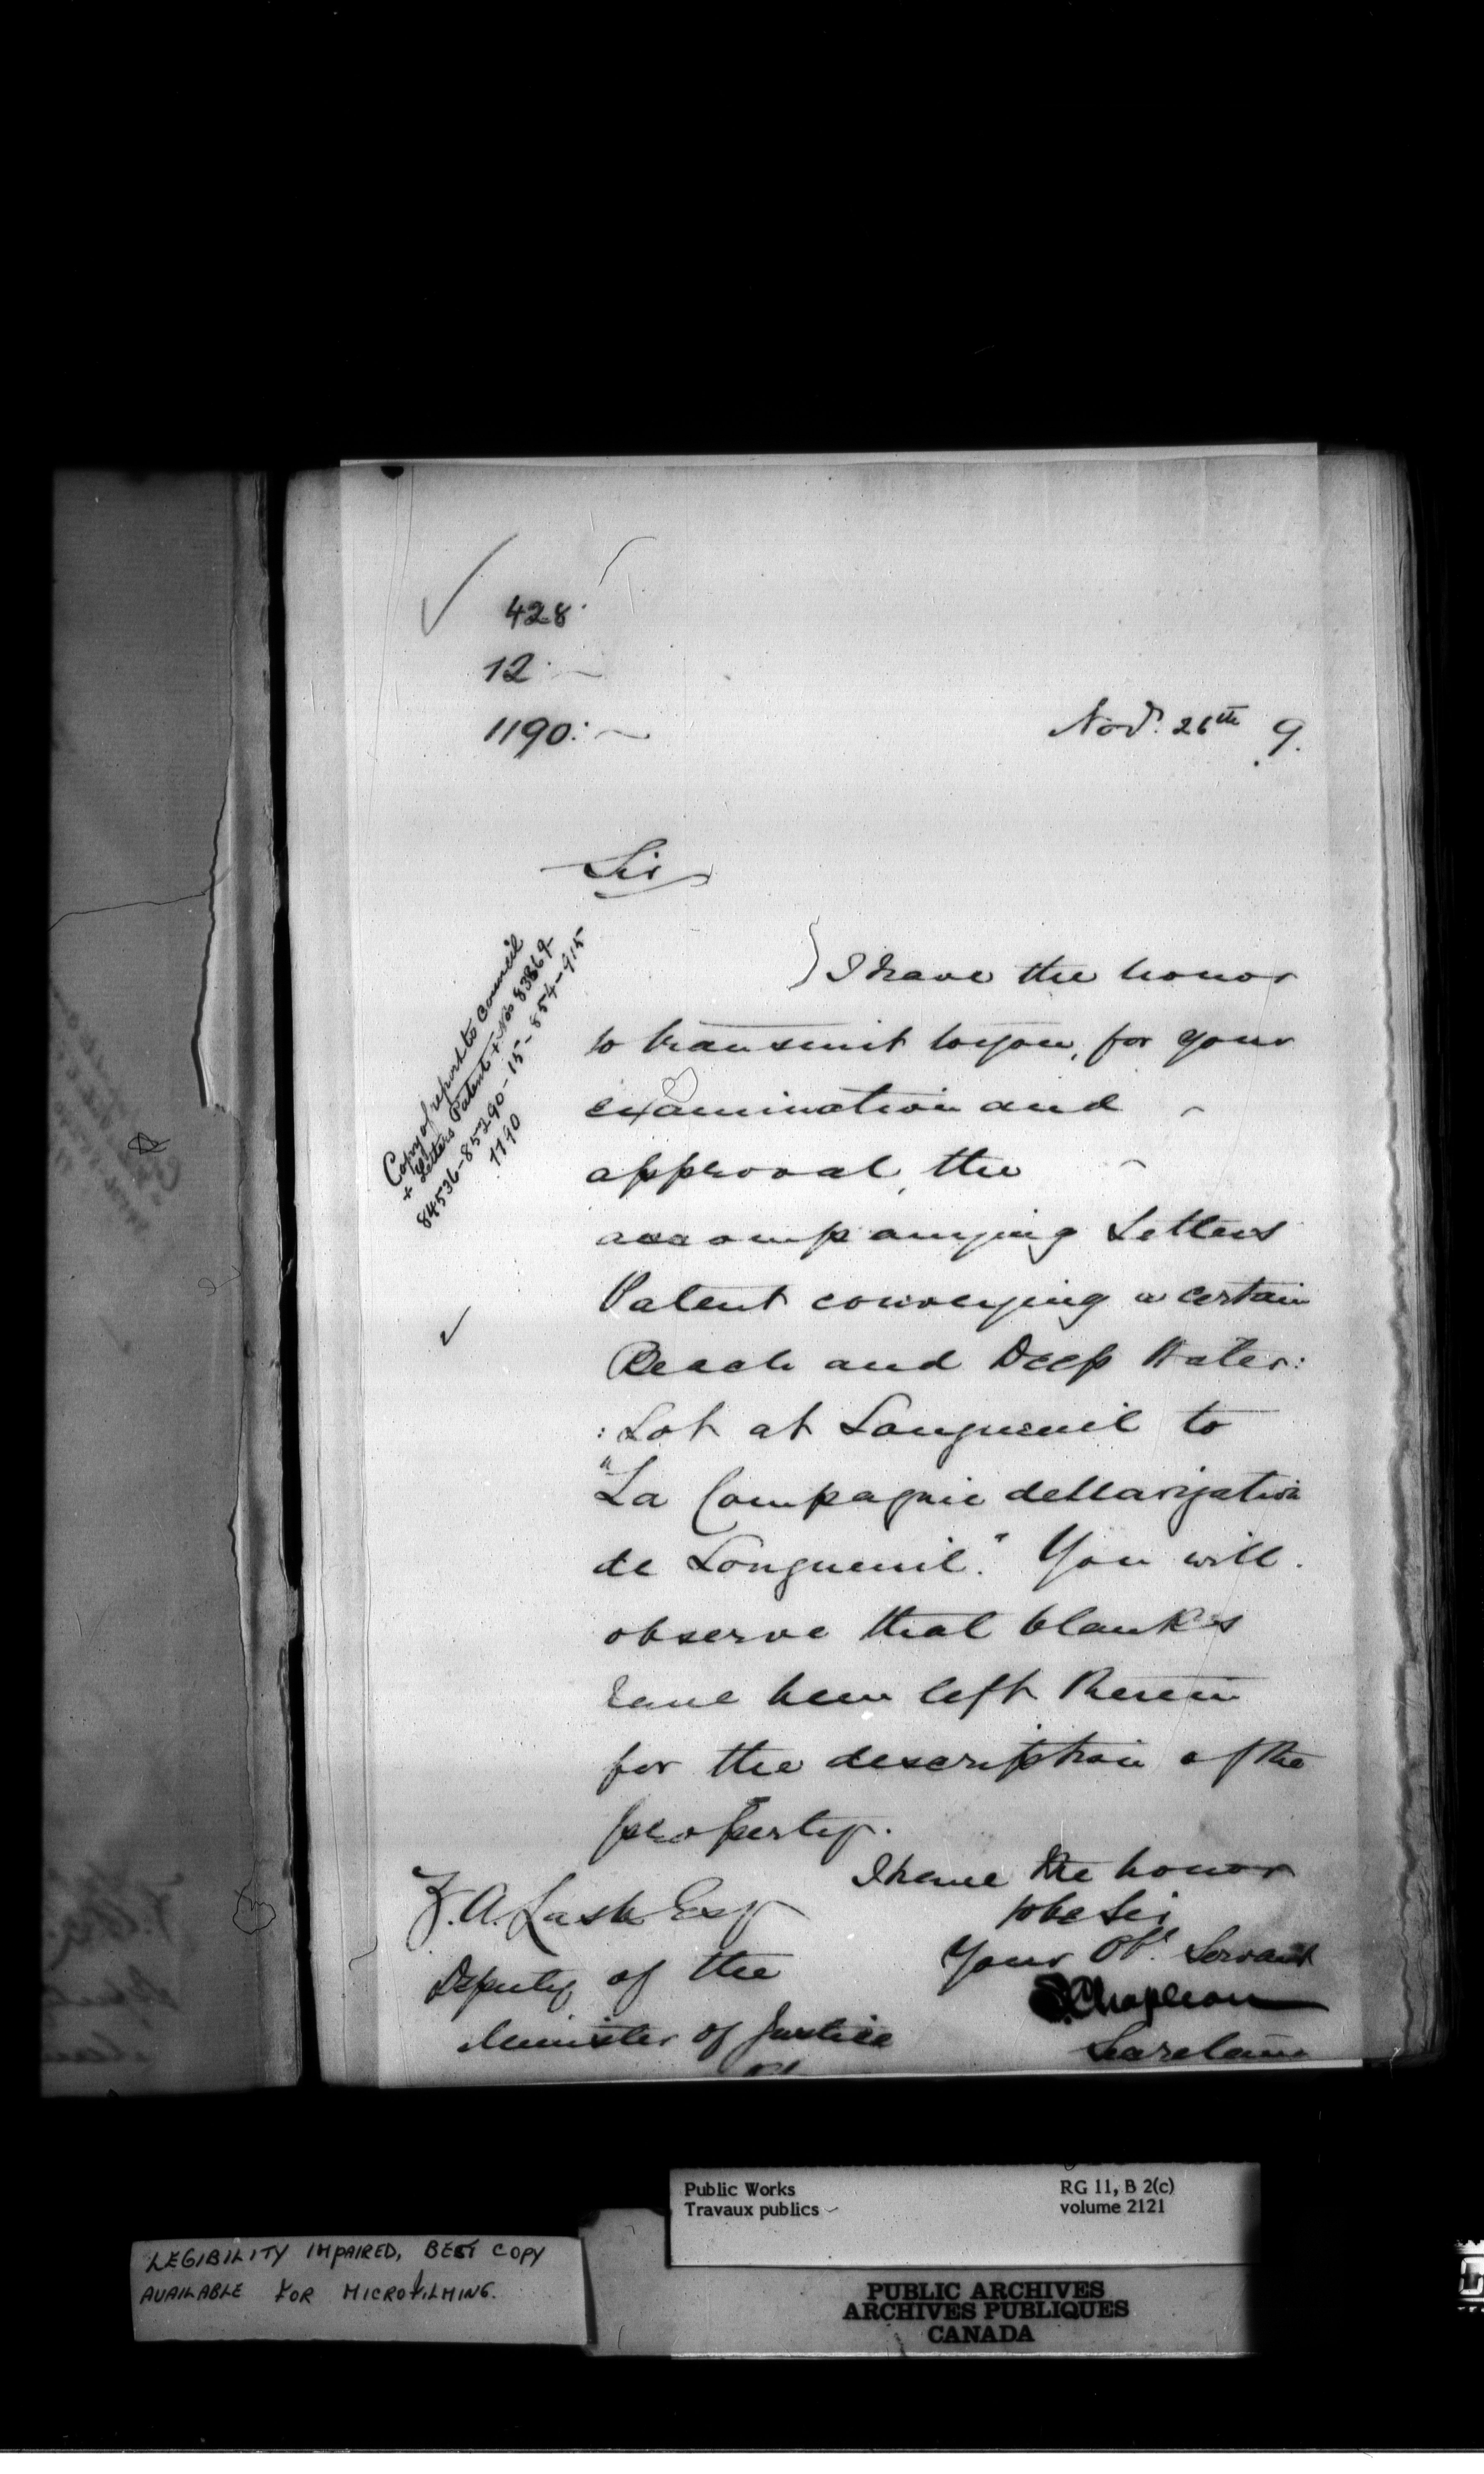 428
12
1190
Nov.r 26th 9.
Sir
I have the honor
to transmit to you, for your
examination and
approval, the
accompanying Letters
Patent conveying a certain
Beach and Deep Water:
:Lot at Longueuil to
"La Compagnie de Navigation
de Longueuil." You will
observe that blanks
have been left therein
for the description of the
property.
I have the honor
to be Sir
Your Obt. Servant
S. Chapleau
Secretary
Z. A. Lash Esq
Deputy of the
Minister of Justice
Copy of report to Council
+ Letters Patent + Nos 83869-
84536-85290-15-854-915
1190
Public Works
Travaux publics
RG 11, B 2(c)
volume 2121
LEGIBILITY IMPAIRED, BEST COPY
AVAILABLE FOR MICROFILMING.
PUBLIC ARCHIVES
ARCHIVES PUBLIQUES
CANADA